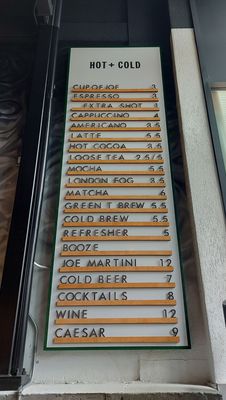 HOT + COLD
CUP OF JOE 3
ESPRESSO 3
EXTRA SHOT 1
CAPPUCCINO 4
AMERICANO 3.5
LATTE 5.5
HOT COCOA 3.5
LOOSE TEA 2.5/5
MOCHA 5.5
LONDON FOG 3.5
MATCHA 6
GREEN T BREW 5.5
COLD BREW 5.5
REFRESHER 5
BOOZE
JOE MARTINI 12
COLD BEER 7
COCKTAILS 8
WINE 12
CAESAR 9